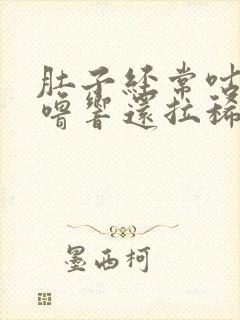 肚子经常咕
噜响还拉稀
墨西柯